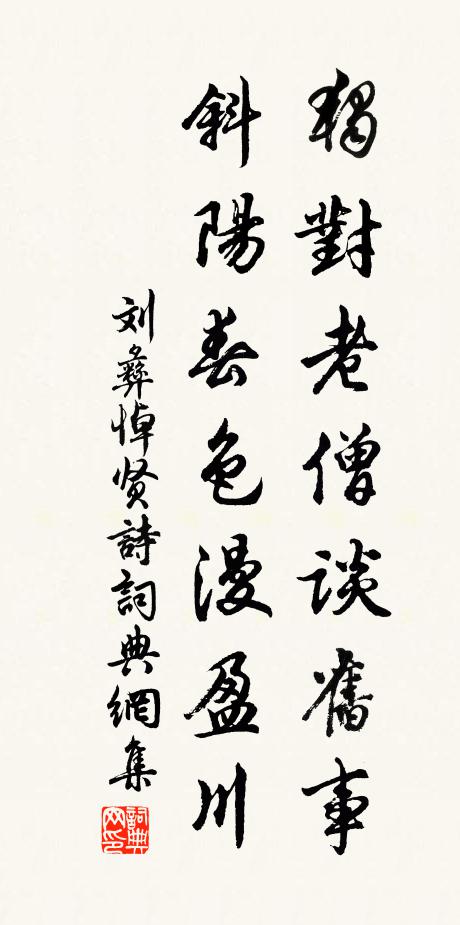 獨對老僧談舊事
斜陽春色漫盈川
刘彝悼贤詩詞典網集
詞典网印